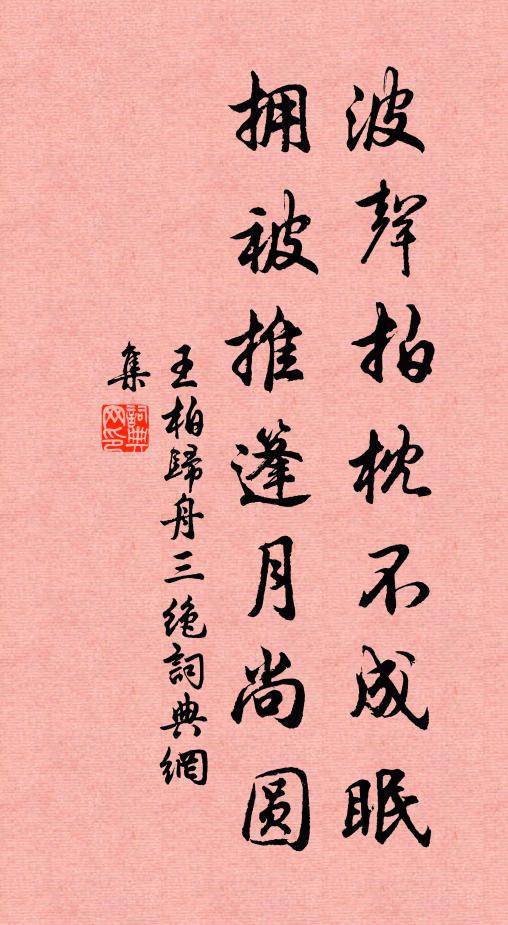 波聲拍枕不成眠
拥被推篷月尚圆
王柏歸舟三绝詞典網
集
詞典网印